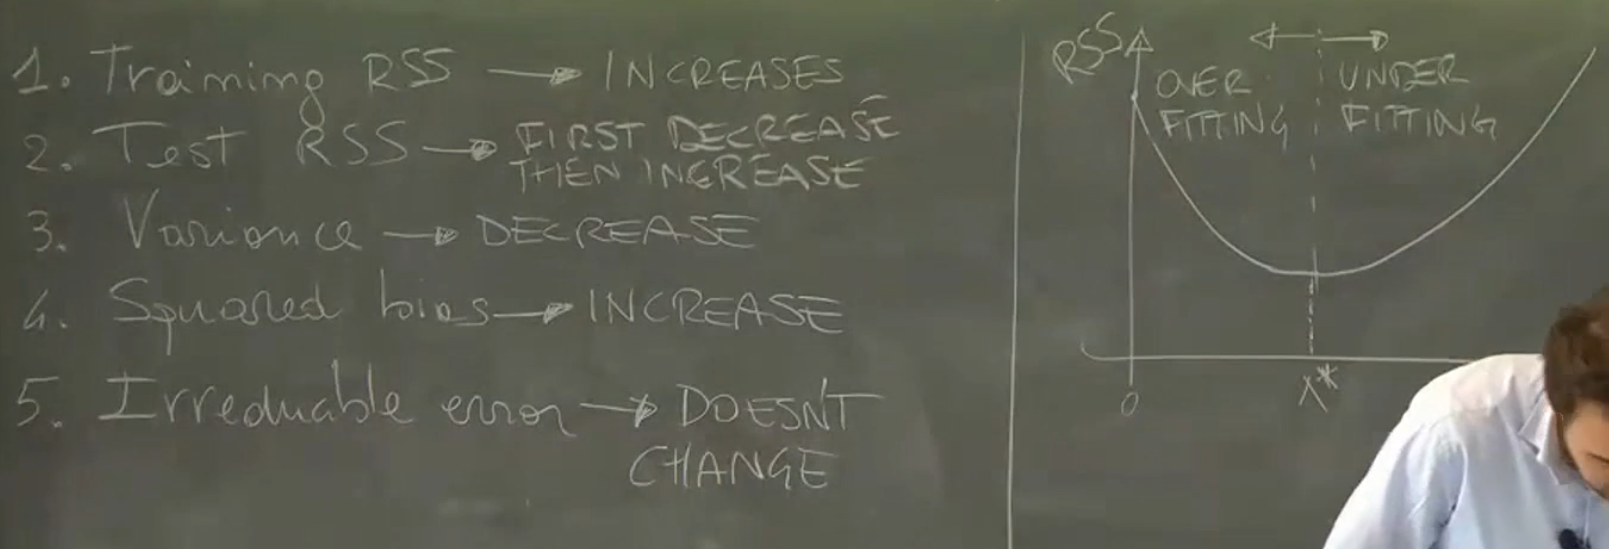 1. Training RSS → INCREASES
2. Test RSS → FIRST DECREASE
THEN INCREASE
3. Variance → DECREASE
4. Squared bias → INCREASE
5. Irreduable error → DOESN'T
CHANGE
RSS
OVER
FITTING
UNDER
FITTING
0
λ*